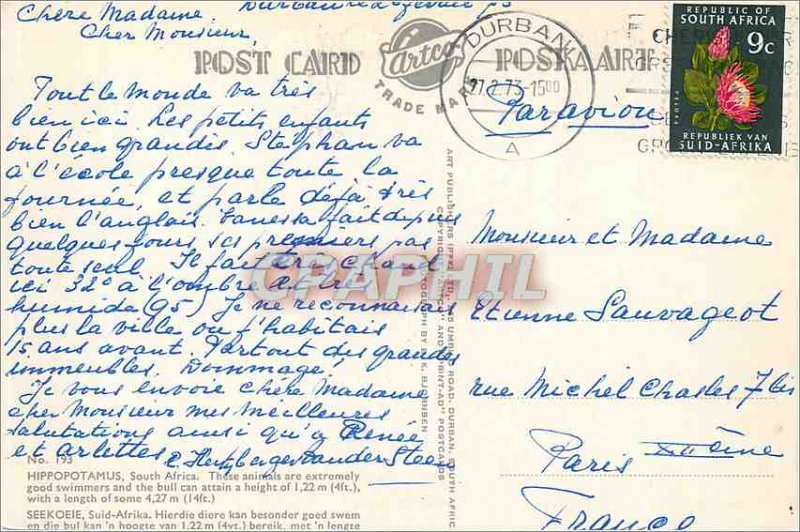 Durban le 26 février 73
Chère Madame,
Cher Monsieur,
POST CARD
Artco
TRADE MARK
POSKAART
DURBAN
27.2.73-15 00
A
REPUBLIC OF
SOUTH AFRICA
9c
PROTEA
REPUBLIEK VAN
SUID-AFRIKA
Par avion
Tout le monde va très
bien ici. Les petits enfants
ont bien grandis. Stephan va
à l'école presque toute la
journée, et parle déjà très
bien l'anglais. Vanessa fait depuis
quelques jours ses premiers pas
toute seul. Il fait très chaud
ici 32° à l'ombre et très
humide (95) Je ne reconnais
plus la ville ou j'habitais
15 ans avant. Partout des grandes
immeubles. Dommage!
Je vous envoie chère Madame
cher Monsieur mes meilleures
salutations ainsi qu'à Renée
et Arlettes
Monsieur et Madame
Etienne Sauvageot
rue Michel Chasles 7 bis
Paris XIIème
France
ART PUBLISHERS (PTY.) LTD., UMBILO ROAD, DURBAN, SOUTH AFRICA
COPYRIGHT "ARTCO" AND "PRINT-AD" POSTCARDS
PHOTOGRAPH BY K. BJORNSEN
CPAPHIL
No. 193
HIPPOPOTAMUS, South Africa. These animals are extremely
good swimmers and the bull can attain a height of 1,22 m (4ft.),
with a length of some 4,27 m (14ft.)
SEEKOEIE, Suid-Afrika. Hierdie diere kan besonder goed swem
en die bul kan 'n hoogte van 1.22 m (4vt.) bereik, met 'n lengte